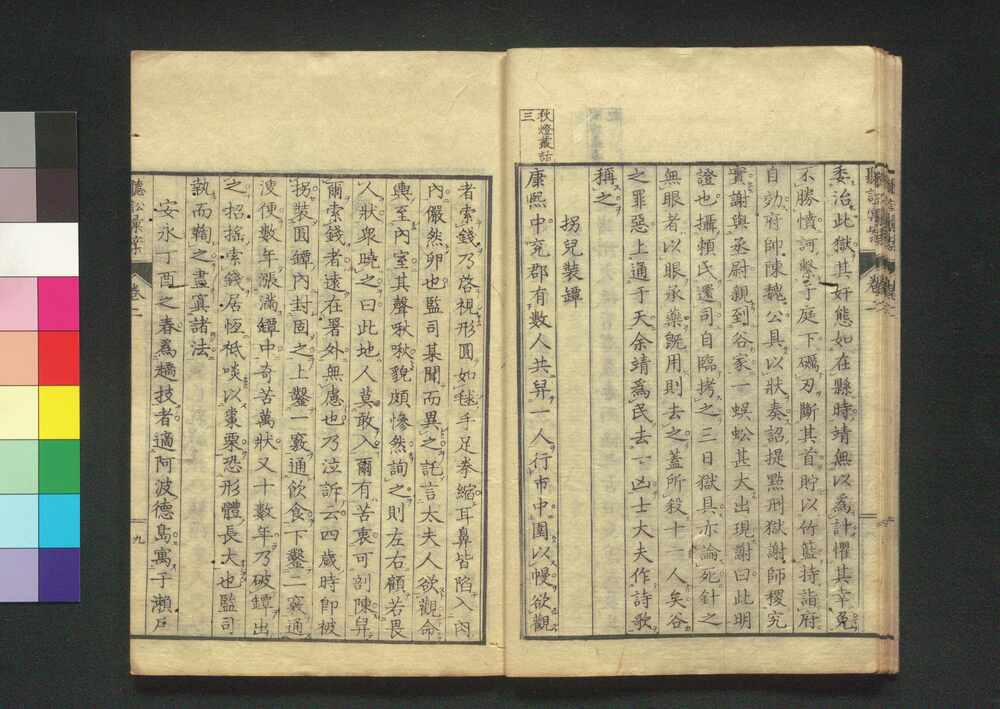 委治此獄其奸態如在縣時靖無以爲計懼其幸免
不勝憤訶繫于庭下礪刃斷其首貯以竹籃持詣府
自劾府帥陳魏公具以狀奏詔提點刑獄謝師稷究
實謝與丞尉親到谷家一蜈蚣甚大出現謝曰此明
證也攝賴氏還司自臨拷之三日獄具亦論死針之
無眼者以眼承藥既用則去之蓋所殺十一人矣谷
之罪惡上通于天余靖爲民去一凶士大夫作詩歌
稱之
拐兒裝罈
秋燈叢話
三
康熙中兗郡有数人共舁一人行市中圍以幔欲觀
者索錢乃啓視形圓如毬手足拳縮耳鼻皆陷入肉
內儼然卵也監司某聞而異之託言太夫人欲觀命
輿至內室其聲啾啾貌頗慘然詢之則左右顧若畏
人狀衆曉之曰此地人莫敢入爾有苦衷可剖陳舁
爾索錢者遠在署外無慮也乃泣訴云四歲時卽被
拐裝圓罈內封固之上鑿一竅通飲食下鑿二竅通
溲便数年漲滿罈中奇苦萬狀又十数年乃破罈出
之招搖索錢居恆祗啖以棗栗恐形體長大也監司
執而鞫之盡寘諸法
安永丁酉之春爲趫技者適阿波德島寓于瀨戶
聽訟彙案
卷二
九